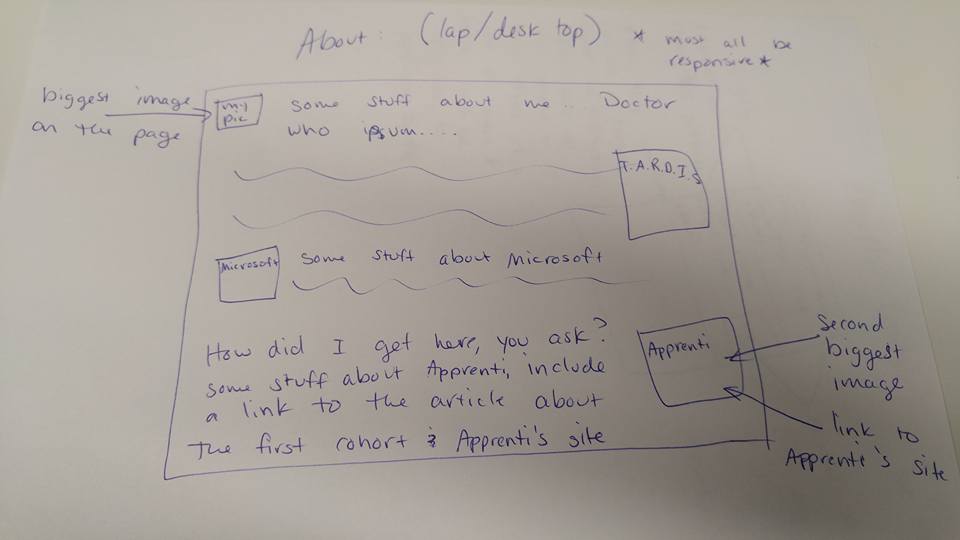 About: (lap/desk top) * must all be
responsive *
biggest image
on the page
my
pic
some stuff about me.. Doctor
who ipsum....
T.A.R.D.I.S
Microsoft
some stuff about Microsoft
How did I get here, you ask?
some stuff about Apprenti, include
a link to the article about
the first cohort & Apprenti's site
Apprenti
second
biggest
image
link to
Apprenti's site